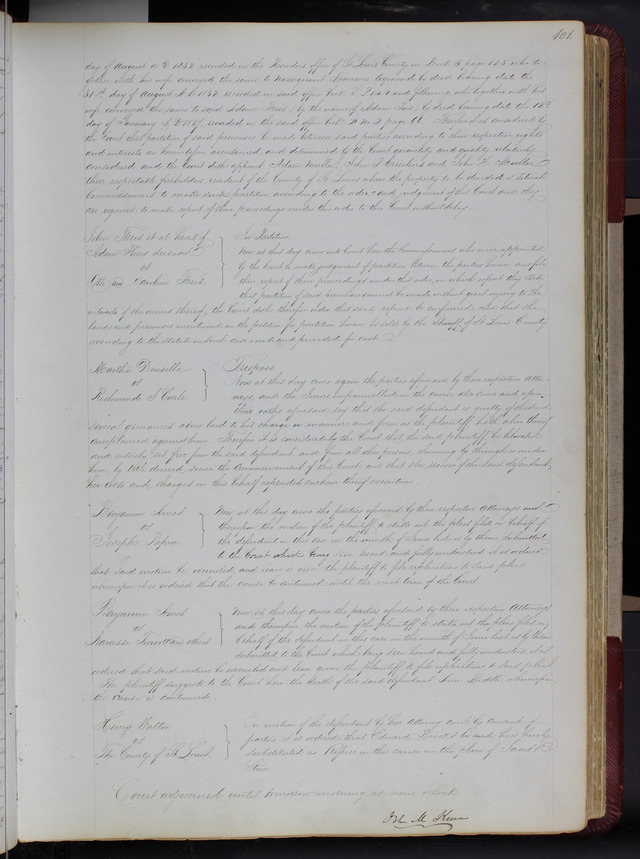 401.
day of August A D 1832 recorded in the Recorders office of St Louis County in Book page 123 who to-
gether with his wife conveyed the same to by deed bearing date the
31st day of August A D 1832 recorded in said office book and following who together with his
wife conveyed the same to said Adam by the name of Adam by deed bearing date the 12th
day of January A D 1837 recorded in the said office book page Therefore it is considered by
the Court that partition of said premises be made between said parties according to their respective rights
and interests as heretofore ascertained and determined by the Court quantity and quality relatively
considered and the Court doth appoint Adam John and John H
three respectable freeholders resident of the County of St Louis where the property to be divided is situate
Commissioners to make such partition according to the order and judgment of this Court and they
are required to make report of their proceedings under this order to this Court without delay.
John et al heirs of
Adam deceased
vs
Caroline
In Partition
Now at this day come into Court here the Commissioners who were appointed
by the Court to make judgment of partition between the parties herein and file
their report of their proceedings under this order, in which report they state
that partition of said premises cannot be made without great injury to the
interests of the owners thereof, the Court doth therefore order this said report be confirmed, and that the
lands and premises mentioned in the petition for partition herein be sold by the Sheriff of St Louis County
according to the statute in such case made and provided for cash
Martha Drusella
vs
Richmond J Curle
Trespass
Now at this day come again the parties aforesaid by their respective Atto-
rnies, and the Jurors impannelled in the cause also come and upon
their oaths aforesaid say that the said defendant is guilty of the
several grievances above laid to his charge in manner and form as the plaintiff hath above thereof
complained against him Therefore it is considered by the Court that the said plaintiff be liberated
and entirely set free from the said defendant and from all other persons, claiming by through or under
him, by title derived, since the commencement of this Court and that she recover of the said defendant,
her costs and charges in this behalf expended and have thereof execution.
Benjamin Ames
vs
Joseph Papin
Now at this day come the parties aforesaid by their respective Attorneys and
thereupon the motion of the plaintiff to strike out the pleas filed in behalf of
the defendant in this case in the month of June last is by them submitted
to the Court which being seen heard and fully understood it is ordered
that said motion be overruled, and leave is given the plaintiff to file replications to said pleas
whereupon it is ordered that the cause be continued until the next term of the Court.
Benjamin Ames
vs
others
Now at this day come the parties aforesaid by their respective Attorneys
and thereupon the motion of the plaintiff to strike out the pleas filed in
behalf of the defendant in this case in the month of June last is by them
submitted to the Court which being seen heard and fully understood it is
ordered that said motion be overruled and leave given the plaintiff to file replications to said pleas
The plaintiff suggests to the Court here the death of the said defendant Ann Biddle whereupon
the cause is continued.
Henry Walton
vs
The County of St Louis
On motion of the defendant by her Attorney and by consent of
parties it is ordered that Edward Brooks be and he is hereby
substituted as Referee in this cause in the place of Jacob
Court adjourned until tomorrow morning at nine oclock
John M Krum